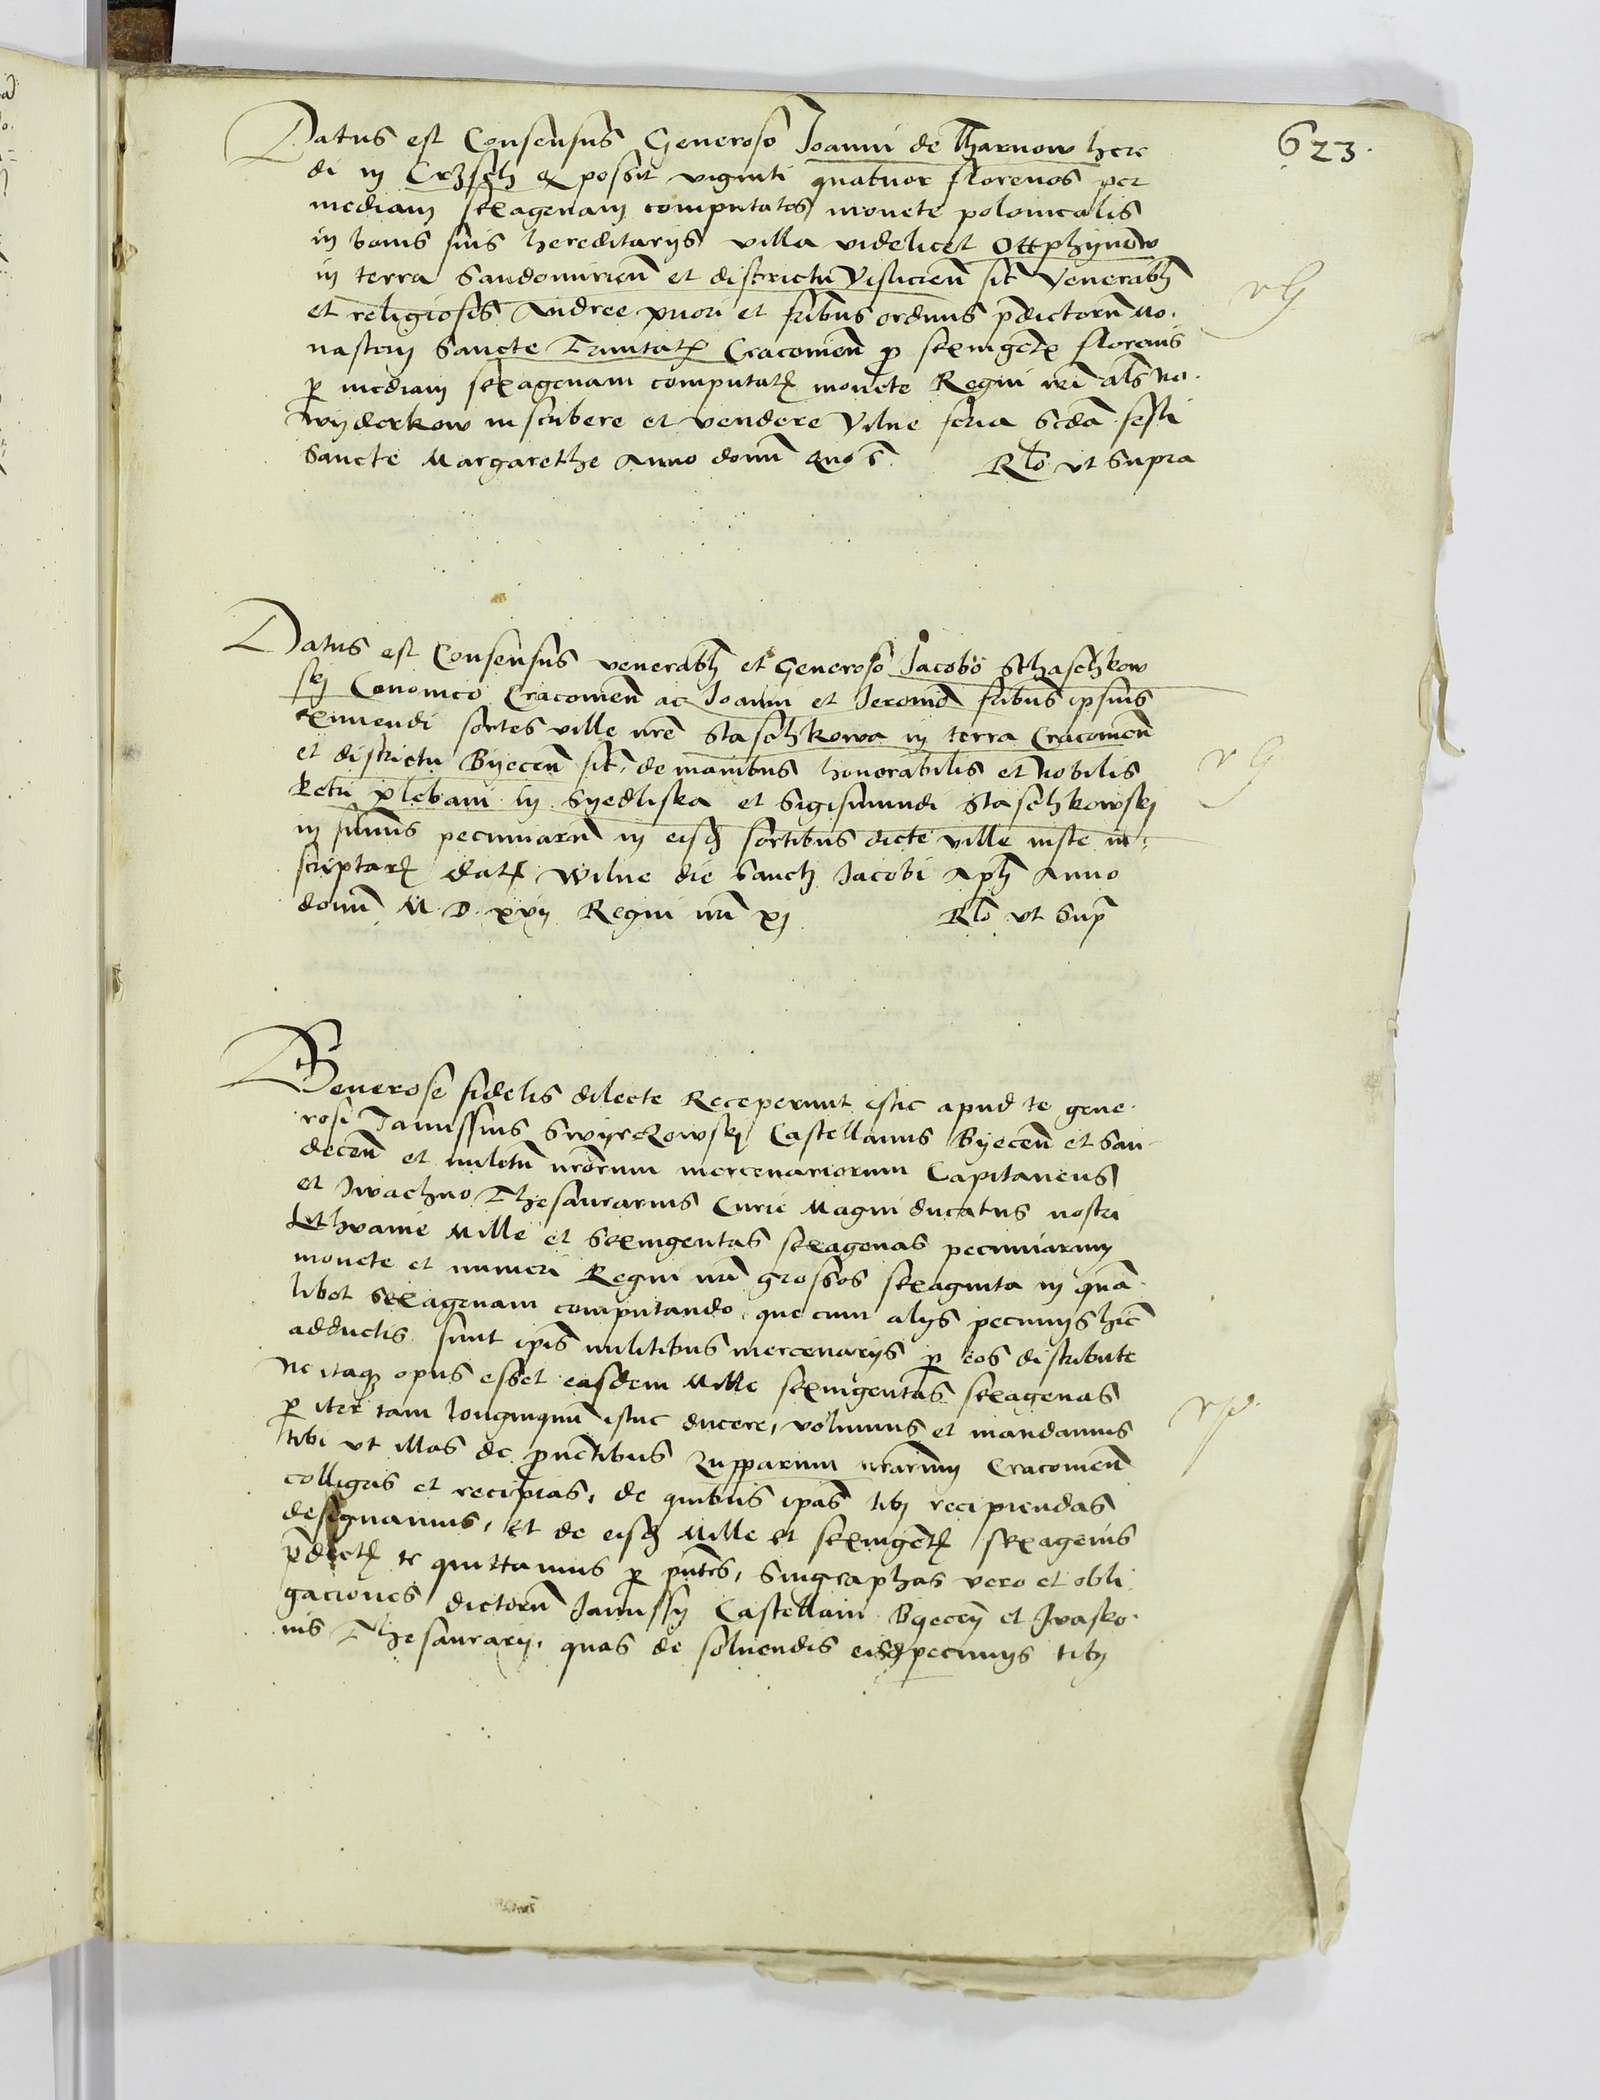 623.
Datus est Consensus Generoso Joanni de Tharnow here
di in Crzsch q possit viginti quatuor florenos per
mediam sexagenam computatos monete polonicalis
in bonis suis hereditarijs villa videlicet Ottphynow
in terra Sandomirien et districtu Vislicien sit Venerabili
et religiosis Andree priori et fribus ordinis pdictorum Mo.
nasterij Sancte Trinitatis Cracovien p sexingentis florenis
p mediam sexagenam computatis monete Regni nri als na
wyderkow inscribere et vendere Vilne feria scda festi
Sancte Margarethe Anno domini quo s. Rlo vt supra
Datus est Consensus venerabili et Generoso Jacobo Sthaschkow
skj Canonico Cracovien ac Joanni et Jeronimo fribus ipsius
eximendi sortes ville nre Staschkowa in terra Cracovien
et districtu Byecen sit. de manibus honorabilis et nobilis
Petri plebani in Syedliska et Sigismundi Staschkowskj
in summis pecuniarum in eisdem sortibus dicte ville iuste in,
scriptis dat Wilne die Sancti Jacobi Apli Anno
domini M. D. xvij Regni nri xj Rlo vt Supra
Generose fidelis dilecte Receperunt istic apud te gene.
rosi Janussius Swyrczowskj Castellanus Byecen et San
decen et militum nrorum mercenariorum Capitaneus
et Iwachno Thesaurarius Curie Magni ducatus nostri
Lithvanie Mille et Sexingentas sexagenas pecuniarum
monete et numeri Regni nri grossos sexaginta in quam
libet Sexagenam computando, que cum alijs pecunijs huc
adductis sunt ipsis militibus mercenarijs p eos distribute
Ne itaque opus esset easdem Mille sexingentas sexagenas
p iter tam longinquum istuc ducere, volumus et mandamus
tibi vt illas de pventibus zupparum nrarum Cracovien
colligas et recipias, de quibus ipas tibi recipiendas
designamus, et de eisdem Mille et sexingentis sexagenis
pdictis te quittamus p pntes, Singraphas vero et obli
gaciones dictorum Janussij Castellani Byecen et Iwasko
nis Thesaurarij, quas de solvendis eisdem pecunijs tibi